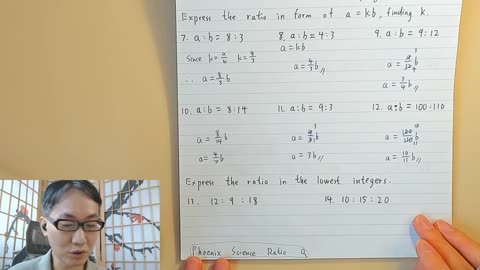 Express the ratio in form of a = kb, finding k.
7. a:b = 8:3
8. a:b = 4:3
9. a:b = 9:12
Since k = a/b k = 8/3
∴ a = 8/3 b
a = kb
a = 4/3 b //
a = 9/12 b 3 4
a = 3/4 b //
10. a:b = 8:14
11. a:b = 9:3
12. a:b = 100:110
a = 8/14 b
a = 4/7 b
a = 9/3 b 3
a = 3b //
a = 100/110 b 10 11
a = 10/11 b //
Express the ratio in the lowest integers.
13. 12:9:18
14. 10:15:20
Phoenix Science Ratio